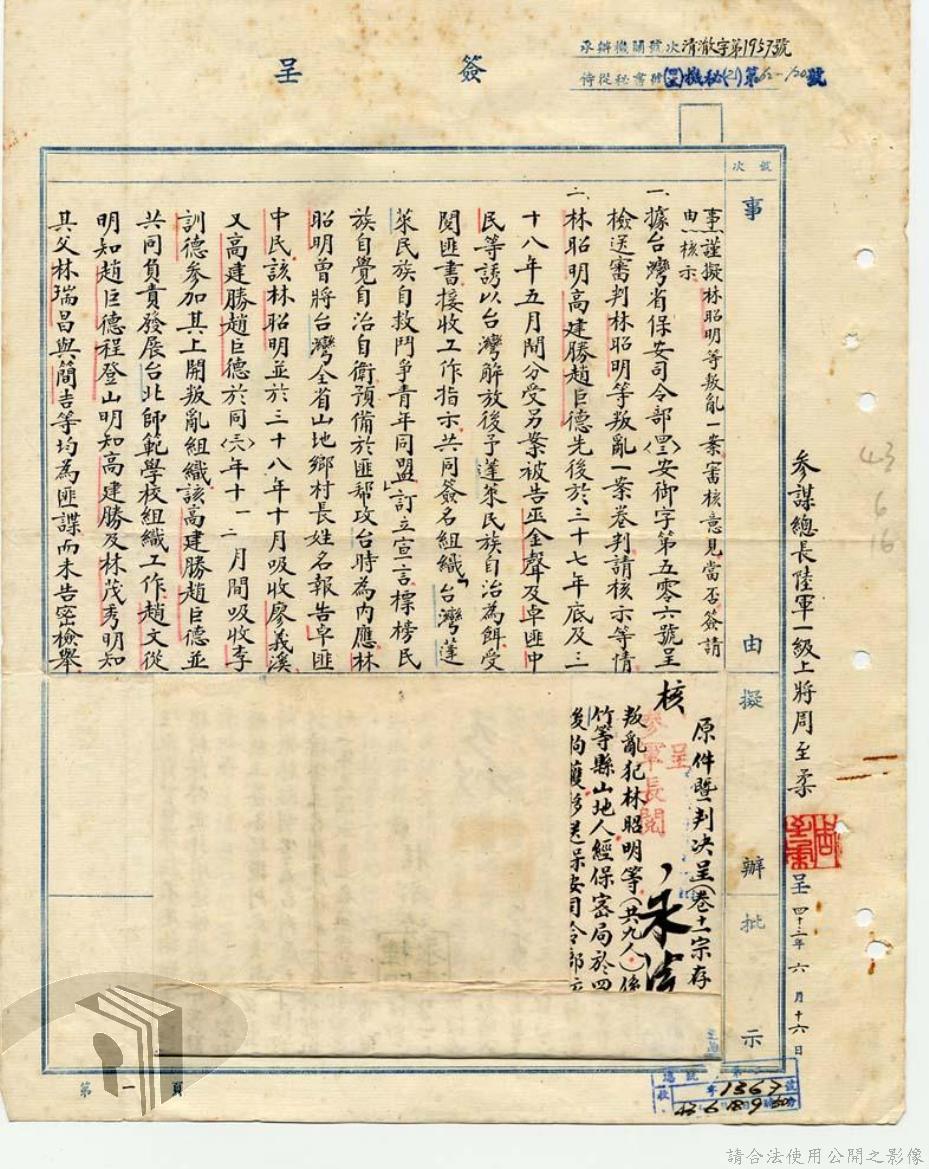 簽呈
承辦機關號次清澈字第1957號
事由
擬辦
批示
號次
事由:謹擬林昭明等叛亂一案審核意見當否簽請
核示
一、據台灣省保安司令部安御字第五零六號呈
檢送審判林昭明等叛亂一案卷判請核示等情
二、林昭明高建勝趙巨德先後於三十七年底及三
十八年五月間分受另案被告巫金聲及卓匪中
民等誘以台灣解放後予蓬萊民族自治為餌受
閱匪書接收工作指示共同簽名組織「台灣蓬
萊民族自救鬥爭青年同盟」訂立宣言標榜民
族自覺自治自衛預備於匪幫攻台時為內應林
昭明曾將台灣全省山地鄉村長姓名報告卓匪
中民該林昭明並於三十八年十月吸收廖義溪
又高建勝趙巨德於同〈六〉年十一二月間吸收李
訓德參加其上開叛亂組織該高建勝趙巨德並
共同負責發展台北師範學校組織工作趙文從
明知趙巨德程登山明知高建勝及林茂秀明知
其父林瑞昌與簡吉等均為匪諜而未告密檢舉
原件暨判決呈(卷十一宗存
核
呈
參軍長閱
叛亂犯林昭明等(共九人)係
竹等縣山地人經保密局於四
後拘獲移送保安司令部
職
參謀總長陸軍一級上將周至柔
呈
四十三年六月十六日
43
6
16
第一頁
1367號
43 6 18 9
請合法使用公開之影像